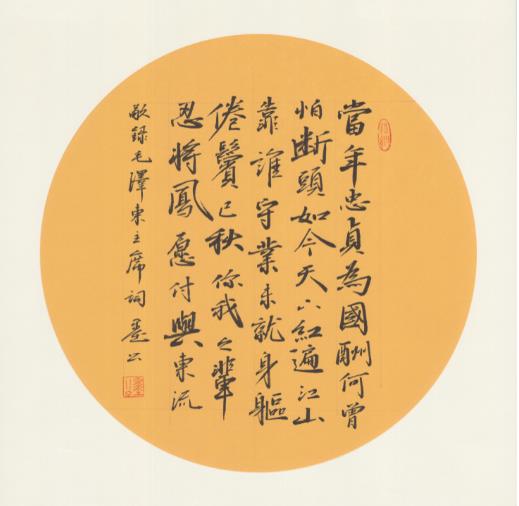 當年忠貞為國酬何曾
怕断頭如今天下紅遍江山
靠誰守業未就身軀
倦鬢已秋你我之輩
忍將鳳愿付與東流
敬錄毛澤東主席詞 墨公